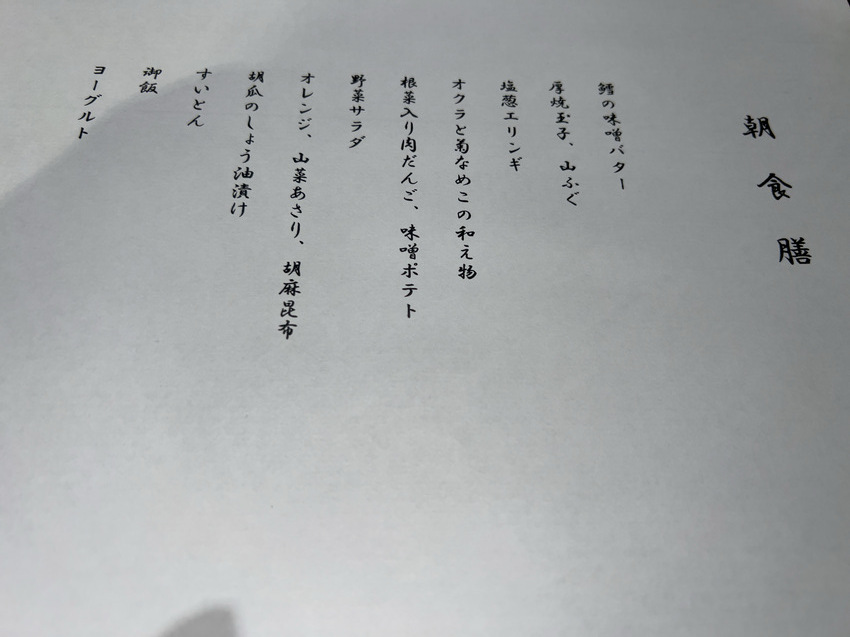 朝食膳
鱈の味噌バター
厚焼玉子、山ふぐ
塩葱エリンギ
オクラと菊なめこの和え物
根菜入り肉だんご、味噌ポテト
野菜サラダ
オレンジ、山菜あさり、胡麻昆布
胡瓜のしょう油漬け
すいとん
御飯
ヨーグルト